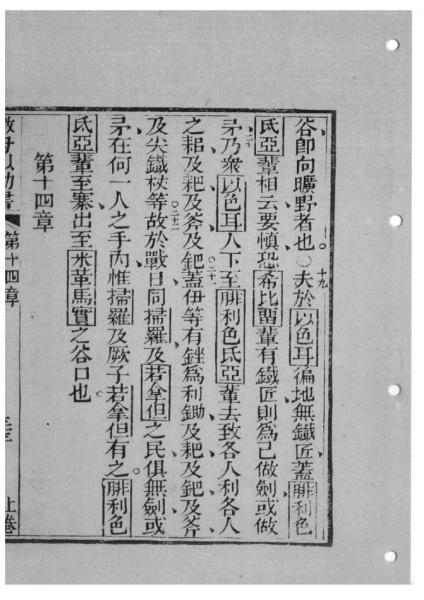 谷卽向曠野者也○十九夫於以色耳徧地無鐵匠蓋腓利色
氐亞輩相云要愼恐希比畱輩有鐵匠則爲己做劍或做
二十矛乃衆以色耳人下至腓利色氐亞輩去致各人利各人
之耜及耙及斧及鈀二十一蓋伊等有銼爲利鋤及耙及鈀及斧
及尖鐵杖等二十二故於戰日同掃羅及若拿但之民俱無劍或
矛在何一人之手內惟掃羅及厥子若拿但有之腓利色
氐亞輩至寨出至米革馬實之谷口也
第十四章
第十四章
上卷